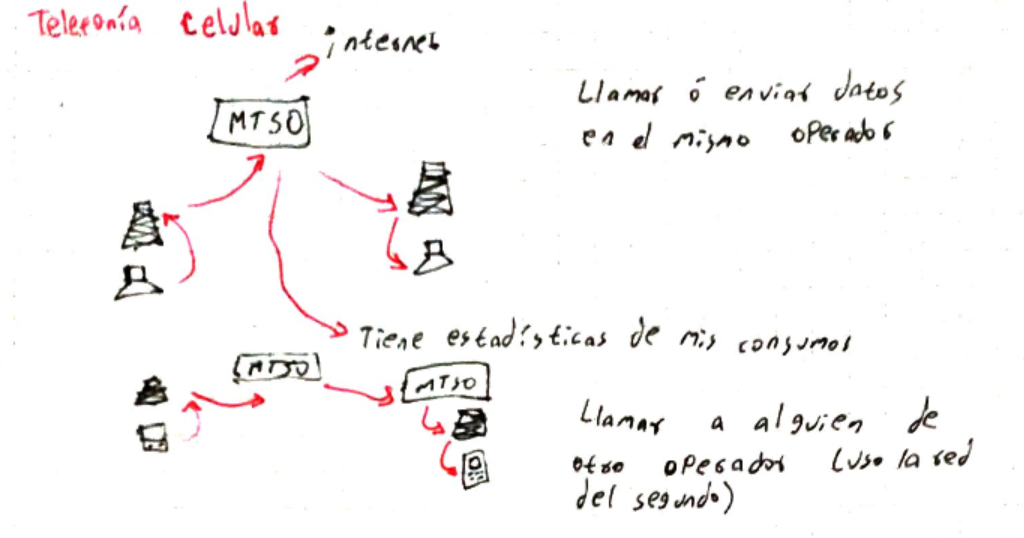 Telefonía Celular
internet
MTSO
Llamar ó enviar datos
en el mismo operador
Tiene estadísticas de mis consumos
MTSO
MTSO
Llamar a alguien de
otro operador (uso la red
del segundo)